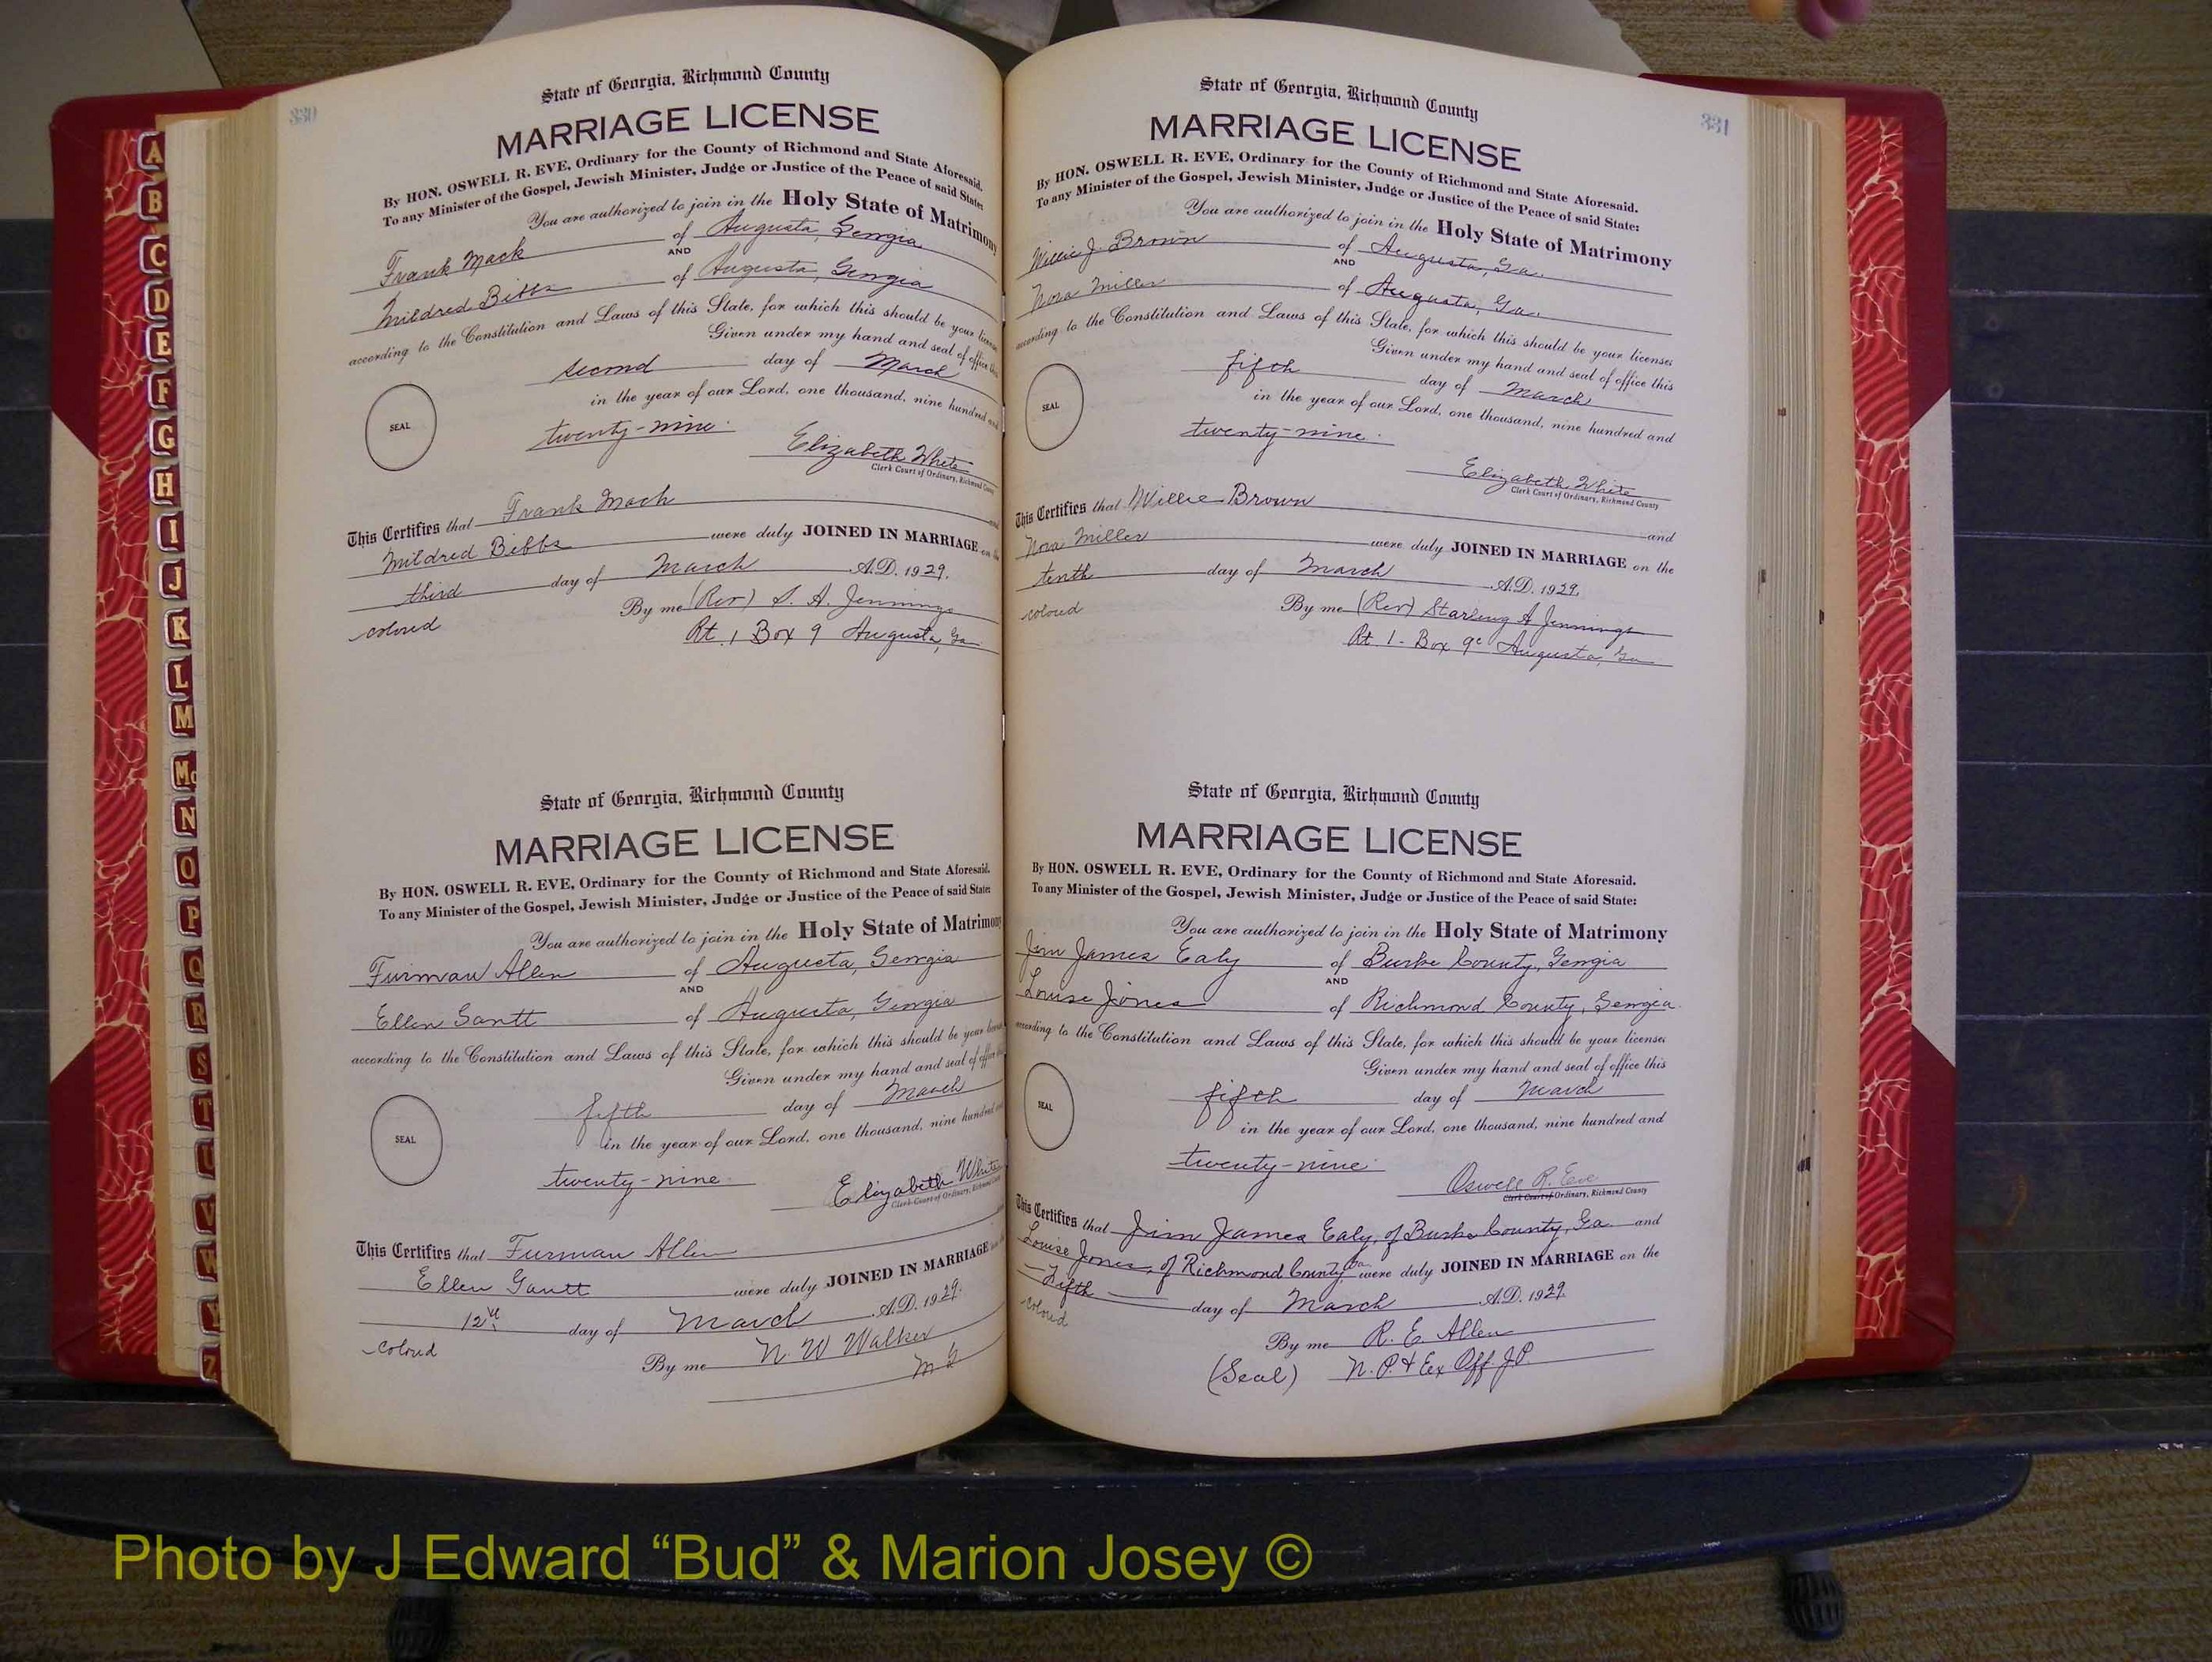 A
B
C
D
E
F
G
H
I
J
K
L
M
Mc
N
O
P
Q
R
S
T
U
V
W
Y
Z
330
State of Georgia, Richmond County
MARRIAGE LICENSE
By HON. OSWELL R. EVE, Ordinary for the County of Richmond and State Aforesaid.
To any Minister of the Gospel, Jewish Minister, Judge or Justice of the Peace of said State:
You are authorized to join in the Holy State of Matrimony
Frank Mack of Augusta, Georgia
AND
Mildred Bibbs of Augusta, Georgia
according to the Constitution and Laws of this State, for which this should be your license
Given under my hand and seal of office this
second day of March
in the year of our Lord, one thousand, nine hundred and
SEAL
twenty-nine.
Elizabeth White
Clerk Court of Ordinary, Richmond County
This Certifies that Frank Mack and
Mildred Bibbs were duly JOINED IN MARRIAGE on the
third day of March A.D. 1929.
colored By me (Rev) S. A. Jennings
Rt. 1 Box 9 Augusta, Ga
State of Georgia, Richmond County
MARRIAGE LICENSE
By HON. OSWELL R. EVE, Ordinary for the County of Richmond and State Aforesaid.
To any Minister of the Gospel, Jewish Minister, Judge or Justice of the Peace of said State:
You are authorized to join in the Holy State of Matrimony
Furman Allen of Augusta, Georgia
AND
Ellen Gantt of Augusta, Georgia
according to the Constitution and Laws of this State, for which this should be your license
Given under my hand and seal of office this
fifth day of March
in the year of our Lord, one thousand, nine hundred and
SEAL
twenty-nine.
Elizabeth White
Clerk Court of Ordinary, Richmond County
This Certifies that Furman Allen
Ellen Gantt were duly JOINED IN MARRIAGE
12th day of March A.D. 1929.
colored By me N. W Walker
M G
331
State of Georgia, Richmond County
MARRIAGE LICENSE
By HON. OSWELL R. EVE, Ordinary for the County of Richmond and State Aforesaid.
To any Minister of the Gospel, Jewish Minister, Judge or Justice of the Peace of said State:
You are authorized to join in the Holy State of Matrimony
Willie J. Brown of Augusta, Ga.
AND
Nora Miller of Augusta, Ga.
according to the Constitution and Laws of this State, for which this should be your licenses
Given under my hand and seal of office this
fifth day of March
in the year of our Lord, one thousand, nine hundred and
SEAL
twenty-nine.
Elizabeth White
Clerk Court of Ordinary, Richmond County
This Certifies that Willie Brown and
Nora Miller were duly JOINED IN MARRIAGE on the
tenth day of March A.D. 1929.
colored By me (Rev) Starling A Jennings
Rt. 1- Box 9c Augusta, Ga
State of Georgia, Richmond County
MARRIAGE LICENSE
By HON. OSWELL R. EVE, Ordinary for the County of Richmond and State Aforesaid.
To any Minister of the Gospel, Jewish Minister, Judge or Justice of the Peace of said State:
You are authorized to join in the Holy State of Matrimony
Jim James Ealy of Burke County, Georgia
AND
Louise Jones of Richmond County, Georgia.
according to the Constitution and Laws of this State, for which this should be your licenses
Given under my hand and seal of office this
fifth day of March
in the year of our Lord, one thousand, nine hundred and
SEAL
twenty-nine.
Oswell R. Eve
Clerk Court of Ordinary, Richmond County
This Certifies that Jim James Ealy, of Burke County, Ga. and
Louise Jones, of Richmond County Ga were duly JOINED IN MARRIAGE on the
Fifth day of March A.D. 1929.
colored
By me R. E. Allen
(Seal) N. P. & Ex Off. J.P.
Photo by J Edward “Bud” & Marion Josey ©